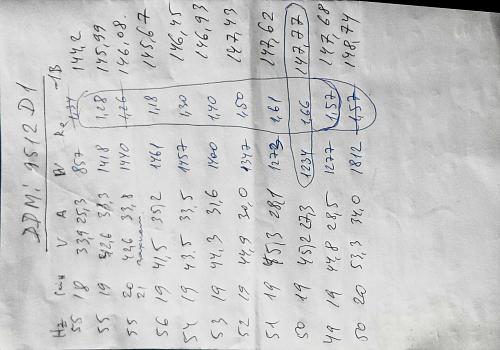 DDMi 9512 D1
Hz V A W -1B
55 18 33,9 25,3 857 144,2
55 19 42,6 33,3 1418 1,28 145,99
55 20 42,6 33,8 1440 1,26 146,08
21
56 19 41,5 35,2 1461 1,18 145,67
54 19 43,5 33,5 1457 1,30 146,45
53 19 44,3 31,6 1400 1,40 146,93
52 19 44,9 30,0 1347 1,50 147,43
51 19 45,3 28,1 1272 1,61 147,62
50 19 45,2 27,3 1234 1,66 147,77
49 19 44,8 28,5 1277 1,57 147,68
50 20 53,3 34,0 1812 1,57 148,74